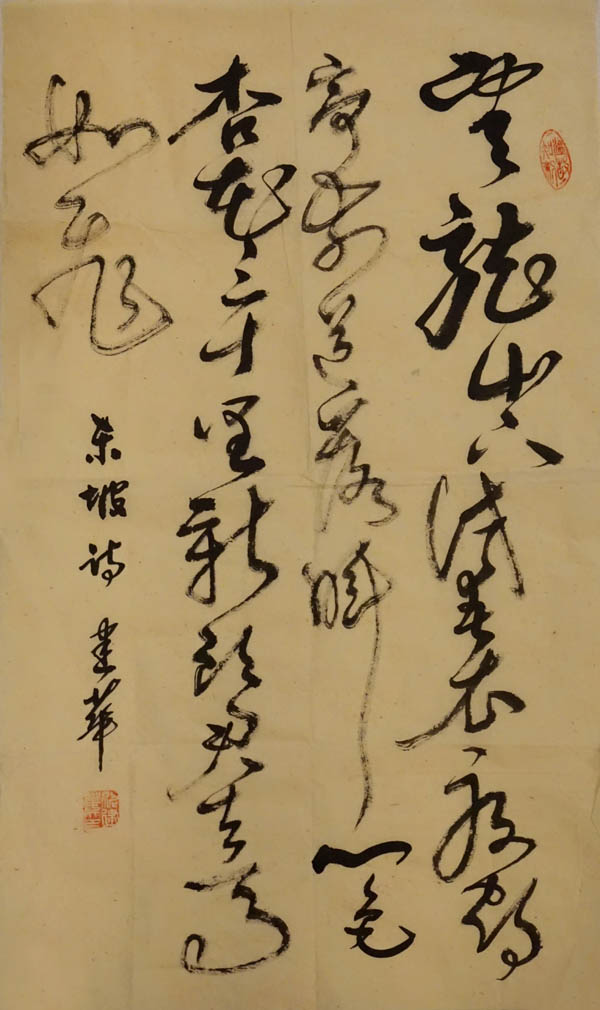 雲龍山下試春衣放鶴
亭前送落暉一色
杏花三十里新郎君去馬
如飛
東坡詩 建華